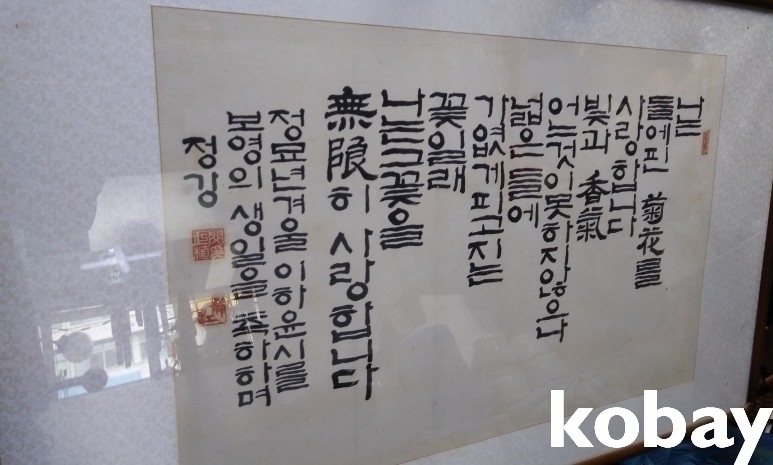 나는
들에핀 菊花를
사랑합니다
빛과 香氣
어느것이못하지않으나
넓은들에
가엾게피고지는
꽃일래
나는그꽃을
無限히 사랑합니다
정묘년겨울 이하윤시를
보영의 생일을 축하하며
정강
kobay